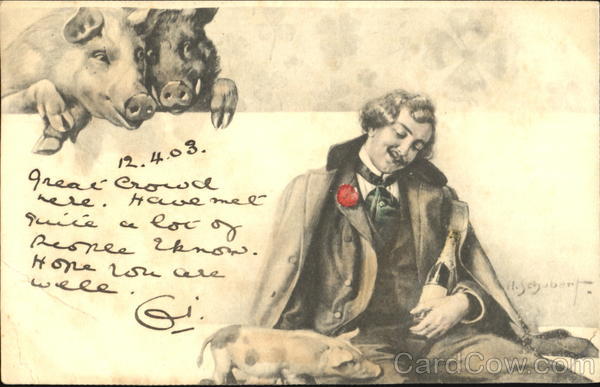 12.4.03.
Great Crowd
here. Have met
quite a lot of
people I know.
Hope you are
well.
H. Schubert
CardCow.com